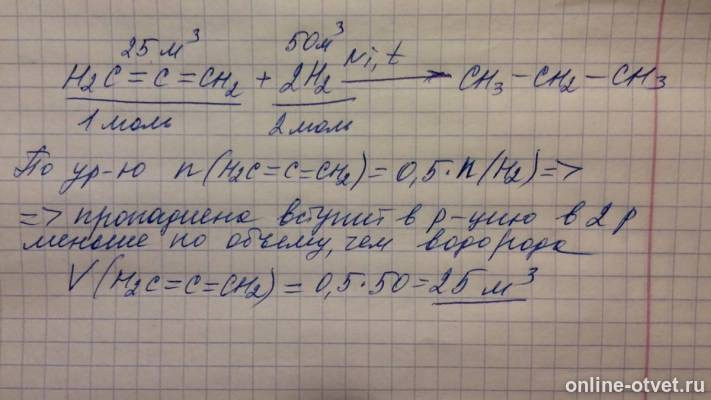 25 м³ 50 м³
H2C=C=CH2 + 2H2 Ni, t → CH3-CH2-CH3
1 моль 2 моль
По ур-ю n(H2C=C=CH2) = 0,5·n(H2) =>
=> пропадиена вступит в р-цию в 2 р
меньше по объему, чем водорода
V(H2C=C=CH2) = 0,5·50 = 25 м³
online-otvet.ru